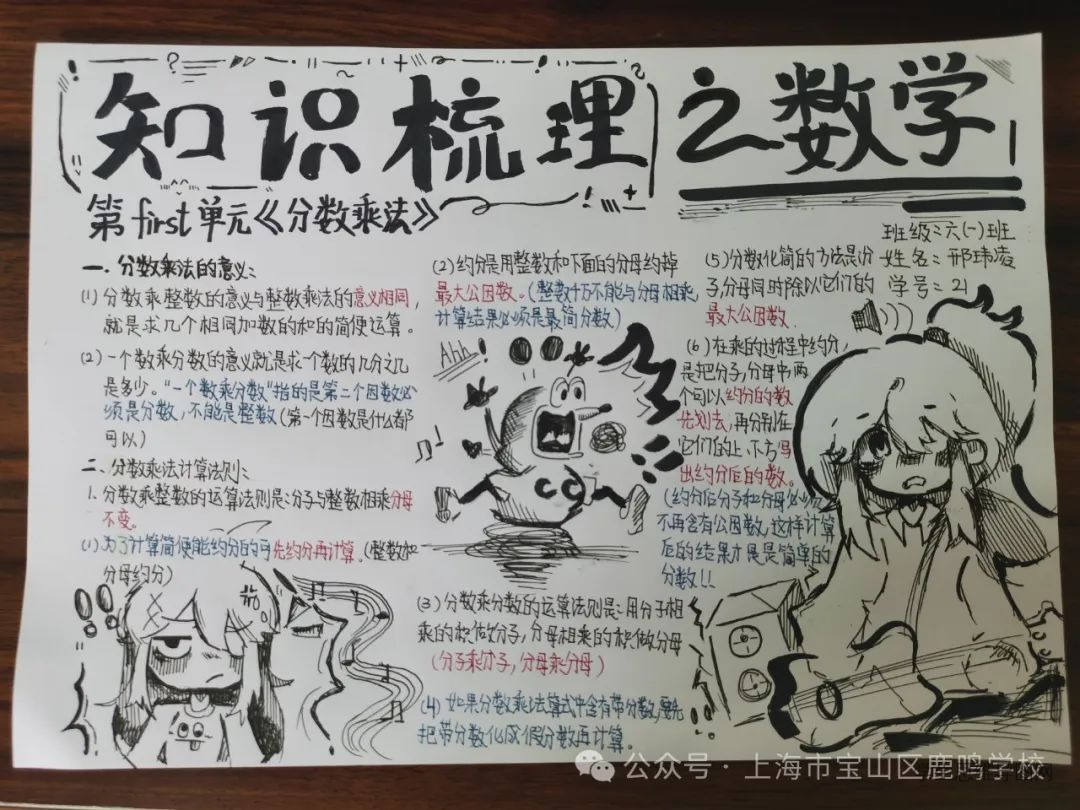 知识梳理之数学
第first单元《分数乘法》
班级：六(一)班
姓名：邢玮凌
学号：21
一、分数乘法的意义：
(1) 分数乘整数的意义与整数乘法的意义相同，
就是求几个相同加数的和的简便运算。
(2) 一个数乘分数的意义就是求一个数的几分之几
是多少。"一个数乘分数"指的是第二个因数必
须是分数，不能是整数(第一个因数是什么都
可以)
二、分数乘法计算法则：
1. 分数乘整数的运算法则是：分子与整数相乘分母
不变。
(1) 为了计算简便能约分的可先约分再计算。(整数和
分母约分)
(2) 约分是用整数和下面的分母约掉
最大公因数。(整数千万不能与分母相乘，
计算结果必须是最简分数)
Ahh!
(3) 分数乘分数的运算法则是：用分子相
乘的积做分子，分母相乘的积做分母
(分子乘分子，分母乘分母)
(4) 如果分数乘法算式中含有带分数，要先
把带分数化成假分数再计算。
(5) 分数化简的方法是：分
子，分母同时除以它们的
最大公因数.
(6) 在乘的过程中约分，
是把分子，分母中，两
个可以约份的数
先划去，再分别在
它们的上、下方写
出约分后的数。
(约分后分子和分母必须
不再含有公因数，这样计算
后的结果才是最简单的
分数!!
公众号·上海市宝山区鹿鸣学校